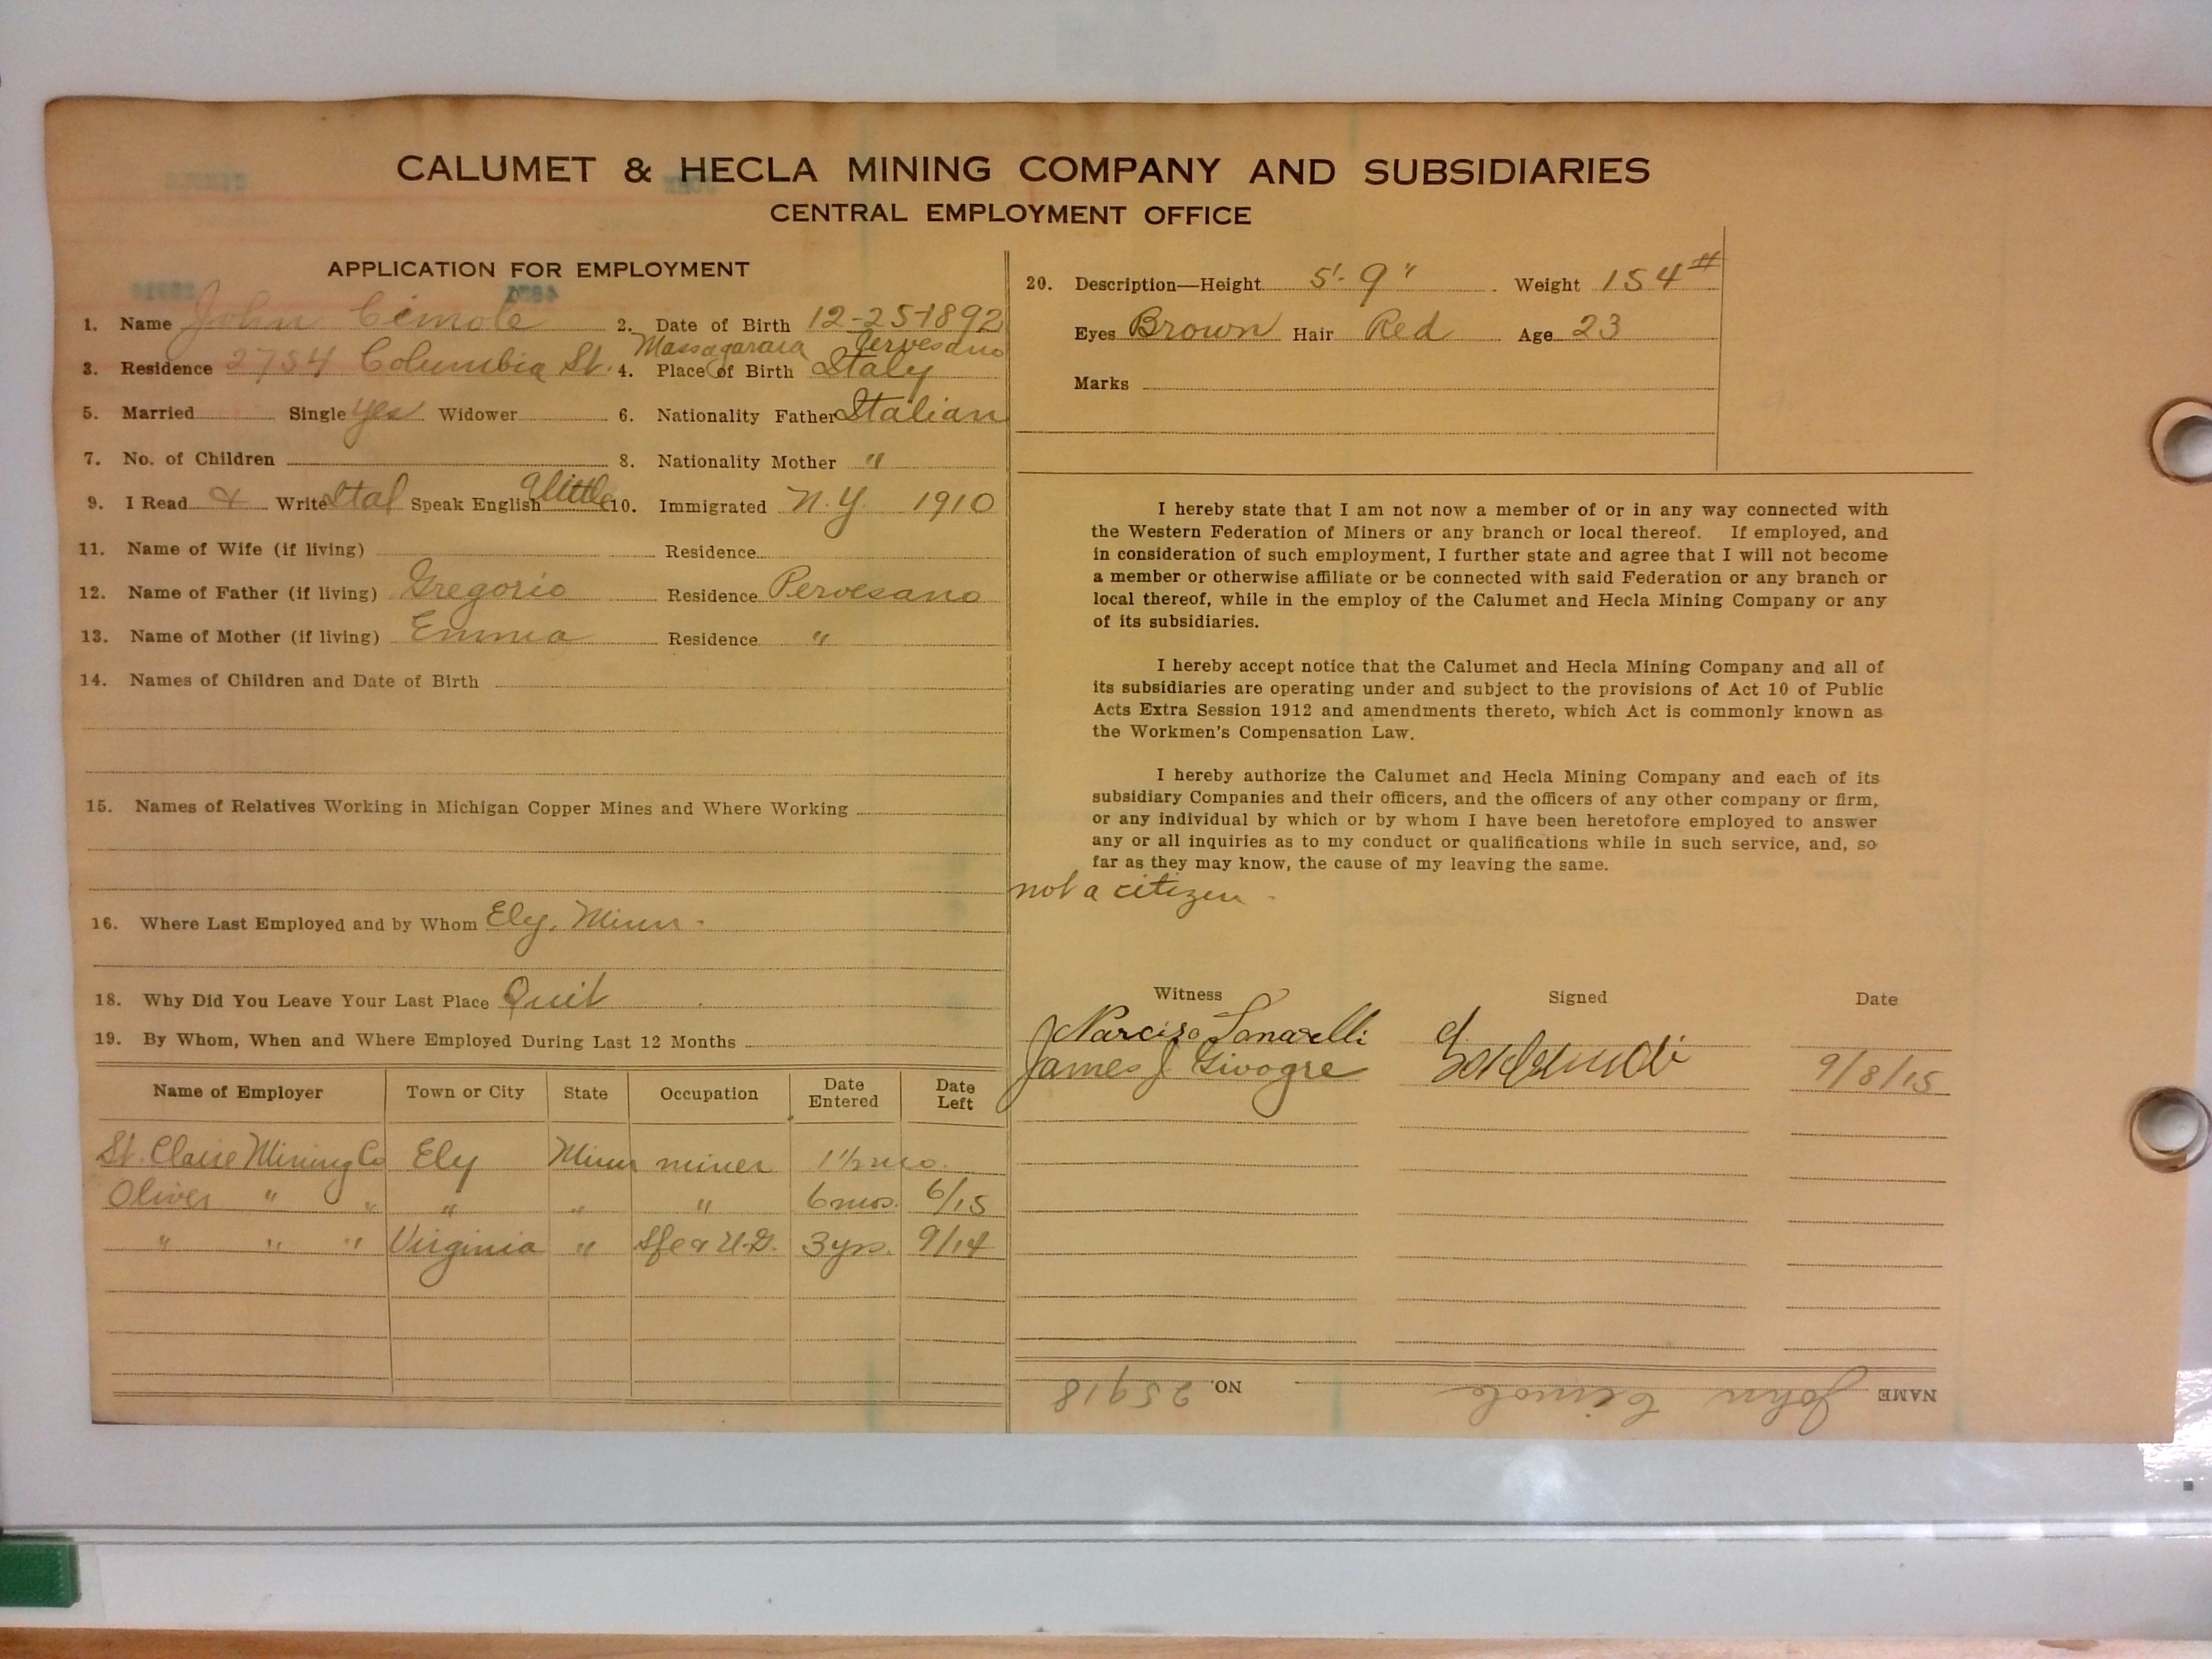 CALUMET & HECLA MINING COMPANY AND SUBSIDIARIES
CENTRAL EMPLOYMENT OFFICE
APPLICATION FOR EMPLOYMENT
1. Name John Cimole 2. Date of Birth 12-25-1892
3. Residence 2754 Columbia St. 4. Place of Birth Italy
5. Married Single yes Widower 6. Nationality Father Italian
7. No. of Children 8. Nationality Mother "
9. I Read & Write Ital Speak English a little 10. Immigrated N.Y. 1910
11. Name of Wife (if living) Residence
12. Name of Father (if living) Gregorio Residence Pervesano
13. Name of Mother (if living) Emma Residence "
14. Names of Children and Date of Birth
15. Names of Relatives Working in Michigan Copper Mines and Where Working
16. Where Last Employed and by Whom Ely, Minn.
18. Why Did You Leave Your Last Place Quit
19. By Whom, When and Where Employed During Last 12 Months
Name of Employer Town or City State Occupation Date Entered Date Left
St. Claire Mining Co Ely Minn miner 1 1/2 mo.
Oliver " " " " " 6 mos. 6/15
" " " Virginia " Sfe & U.G. 3 yrs. 9/14
20. Description—Height 5'-9" Weight 154#
Eyes Brown Hair Red Age 23
Marks
I hereby state that I am not now a member of or in any way connected with
the Western Federation of Miners or any branch or local thereof. If employed, and
in consideration of such employment, I further state and agree that I will not become
a member or otherwise affiliate or be connected with said Federation or any branch or
local thereof, while in the employ of the Calumet and Hecla Mining Company or any
of its subsidiaries.
I hereby accept notice that the Calumet and Hecla Mining Company and all of
its subsidiaries are operating under and subject to the provisions of Act 10 of Public
Acts Extra Session 1912 and amendments thereto, which Act is commonly known as
the Workmen's Compensation Law.
I hereby authorize the Calumet and Hecla Mining Company and each of its
subsidiary Companies and their officers, and the officers of any other company or firm,
or any individual by which or by whom I have been heretofore employed to answer
any or all inquiries as to my conduct or qualifications while in such service, and, so
far as they may know, the cause of my leaving the same.
not a citizen
Witness Signed Date
Narciso
James J. Givogre 9/8/15
NAME John Cimole NO. 25918